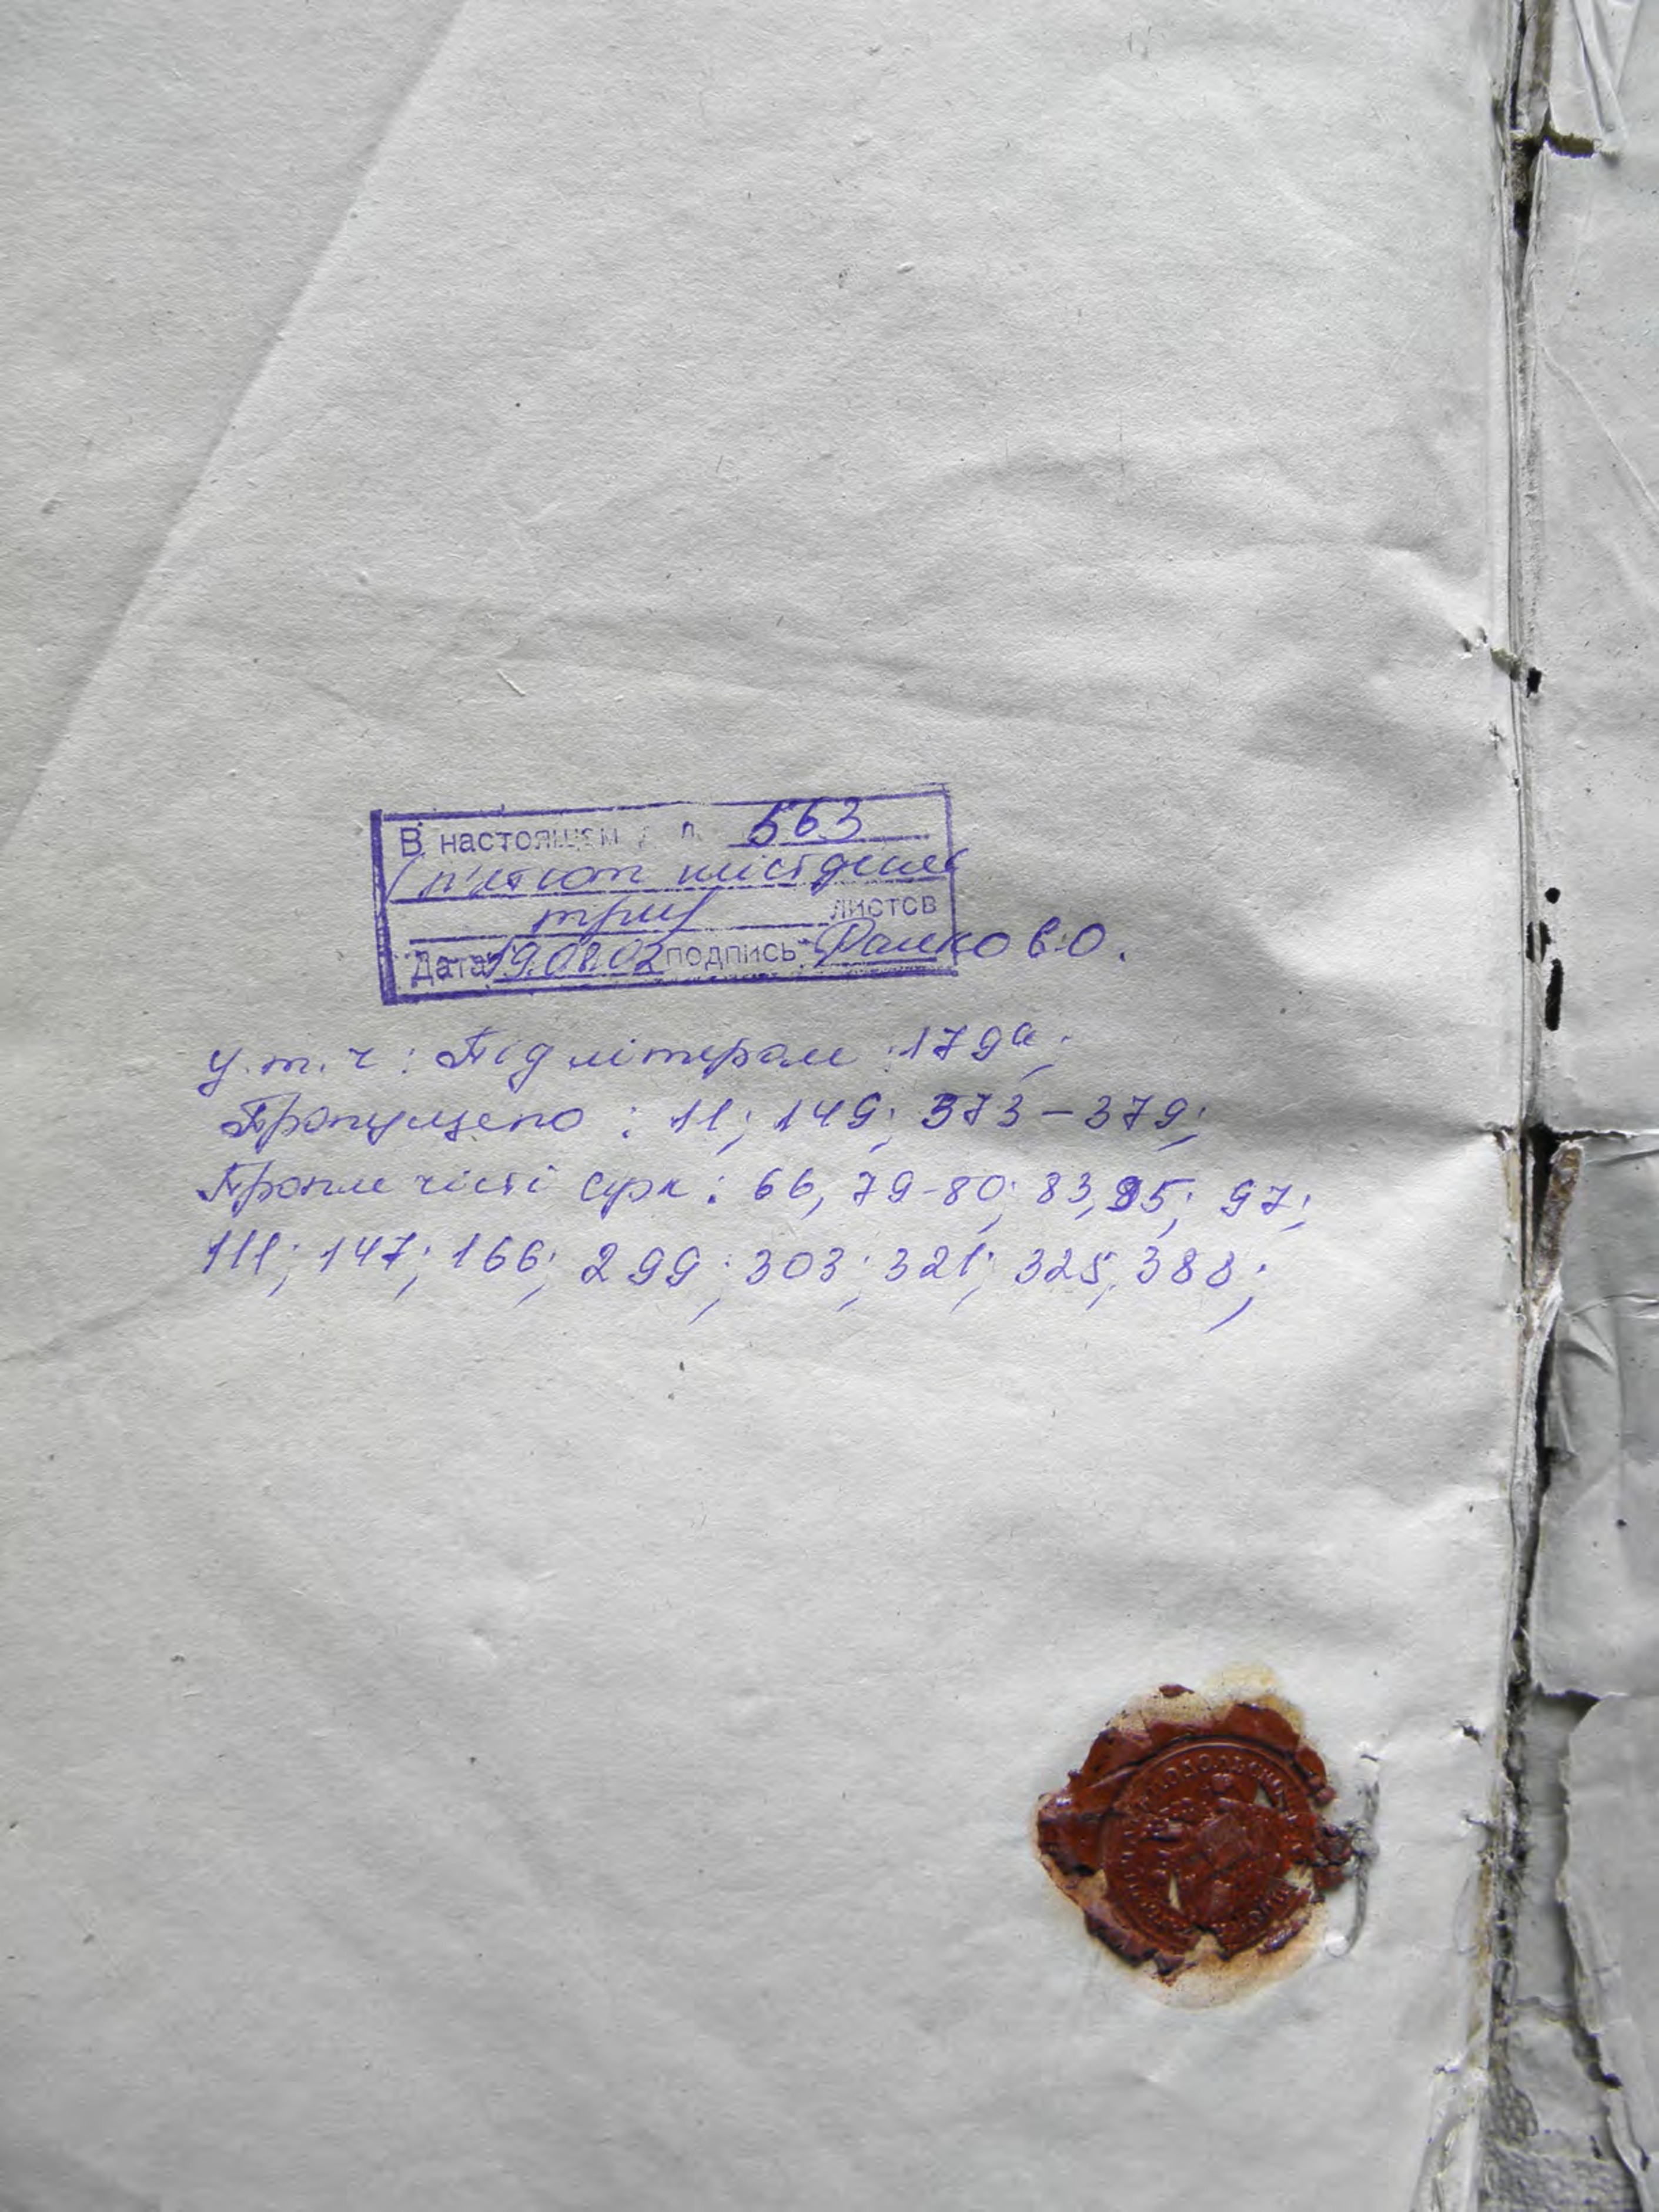 В настоящем д. л. 563
(п'ятсот шістдесят
три) листов
Дата 19.08.02 подпись Ранко В.О.
у т. ч: Під літерам: 179а;
Пропущено: 11; 149; 373-379;
чисті арк: 66, 79-80; 83, 95; 97;
111; 147; 166; 299; 303; 321; 325, 388;